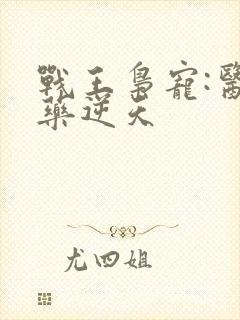 戰王梟寵:醫
藥逆天
尤四姐